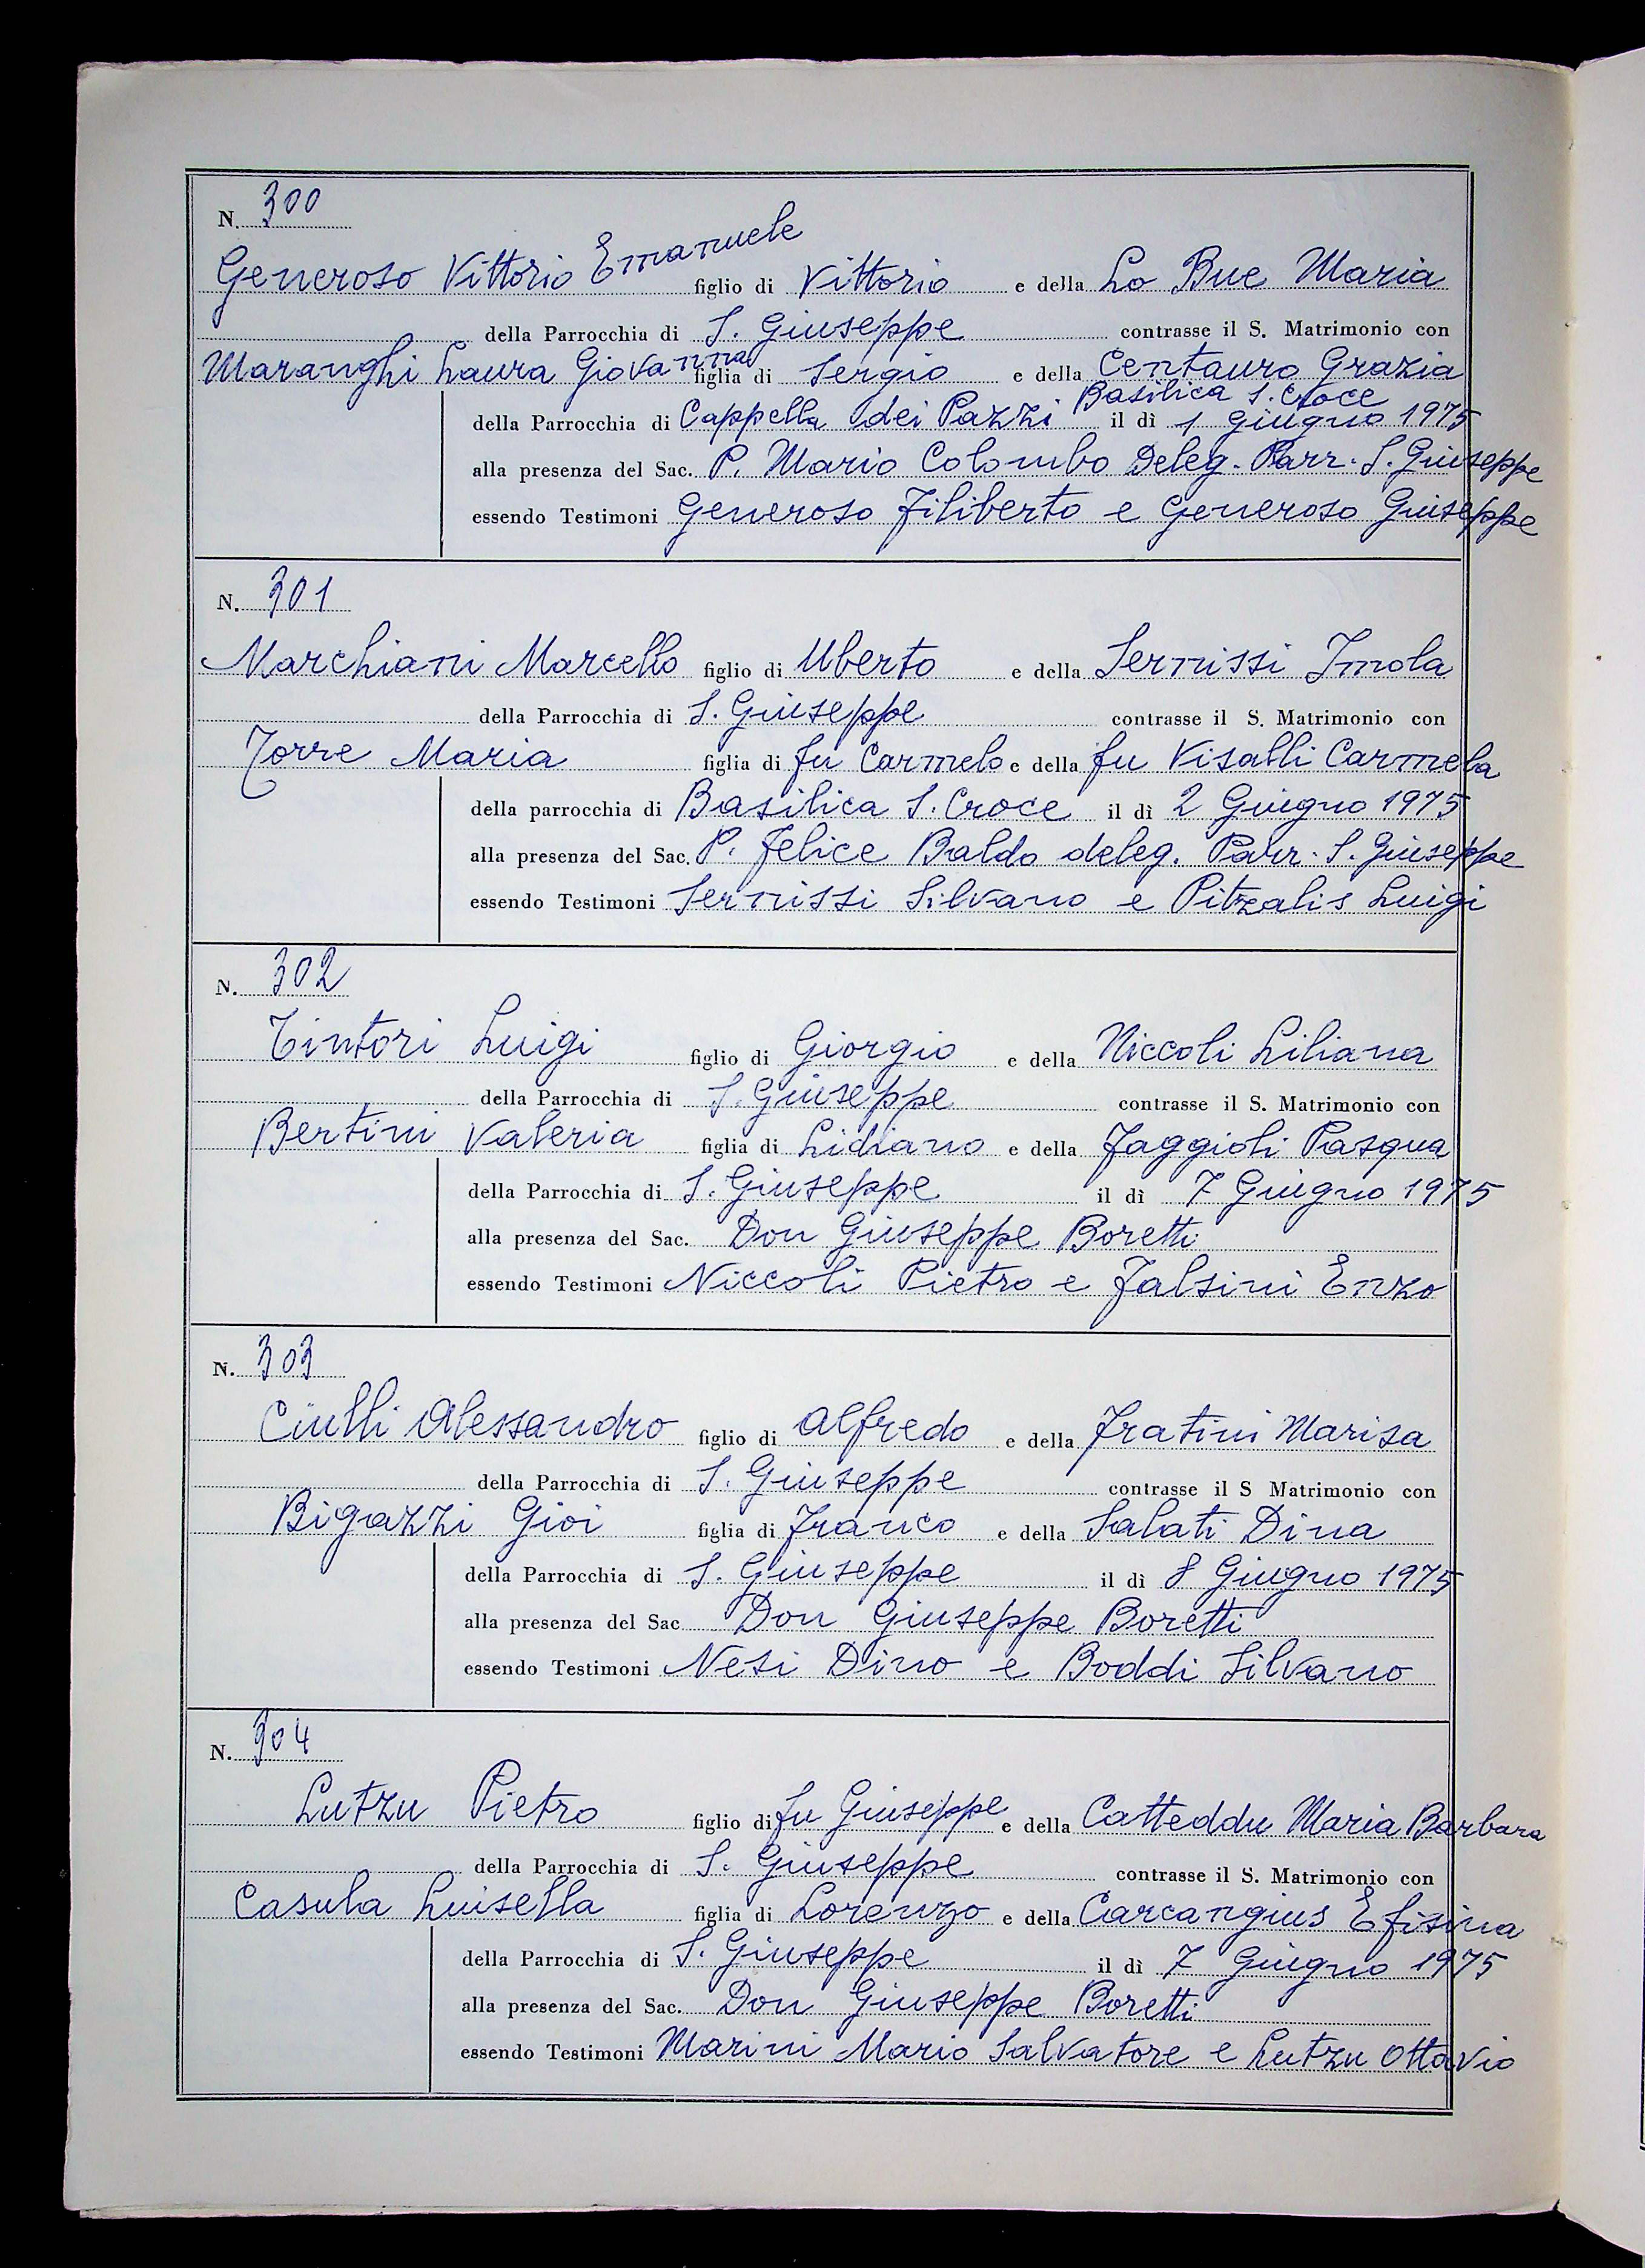 N. 300
Generoso Vittorio Emanuele figlio di Vittorio e della Lo Bue Maria
della Parrocchia di S. Giuseppe contrasse il S. Matrimonio con
Maranghi Laura Giovanna figlia di Sergio e della Centauro Grazia
Basilica S. Croce
della Parrocchia di Cappella dei Pazzi il dì 1 giugno 1975
alla presenza del Sac. P. Mario Colombo Deleg. Parr. S. Giuseppe
essendo Testimoni Generoso Filiberto e Generoso Giuseppe
N. 301
Marchiani Marcello figlio di Uberto e della Sernissi Imola
della Parrocchia di S. Giuseppe contrasse il S. Matrimonio con
Torre Maria figlia di fu Carmelo e della fu Visalli Carmela
della parrocchia di Basilica S. Croce il dì 2 Giugno 1975
alla presenza del Sac. P. Felice Baldo deleg. Parr. S. Giuseppe
essendo Testimoni Sernissi Silvano e Pitzalis Luigi
N. 302
Tintori Luigi figlio di Giorgio e della Niccoli Liliana
della Parrocchia di S. Giuseppe contrasse il S. Matrimonio con
Bertini Valeria figlia di Lidiano e della Faggioli Pasqua
della Parrocchia di S. Giuseppe il dì 7 Giugno 1975
alla presenza del Sac. Don Giuseppe Boretti
essendo Testimoni Niccoli Pietro e Falsini Enzo
N. 303
Ciulli Alessandro figlio di Alfredo e della Fratini Marisa
della Parrocchia di S. Giuseppe contrasse il S Matrimonio con
Bigazzi Gioi figlia di Franco e della Salati Dina
della Parrocchia di S. Giuseppe il dì 8 Giugno 1975
alla presenza del Sac Don Giuseppe Boretti
essendo Testimoni Nesi Dino e Boddi Silvano
N. 304
Lutzu Pietro figlio di fu Giuseppe e della Catteddu Maria Barbara
della Parrocchia di S. Giuseppe contrasse il S. Matrimonio con
Casula Luisella figlia di Lorenzo e della Carcangius Efisina
della Parrocchia di S. Giuseppe il dì 7 Giugno 1975
alla presenza del Sac. Don Giuseppe Boretti
essendo Testimoni Marini Mario Salvatore e Lutzu Ottavio